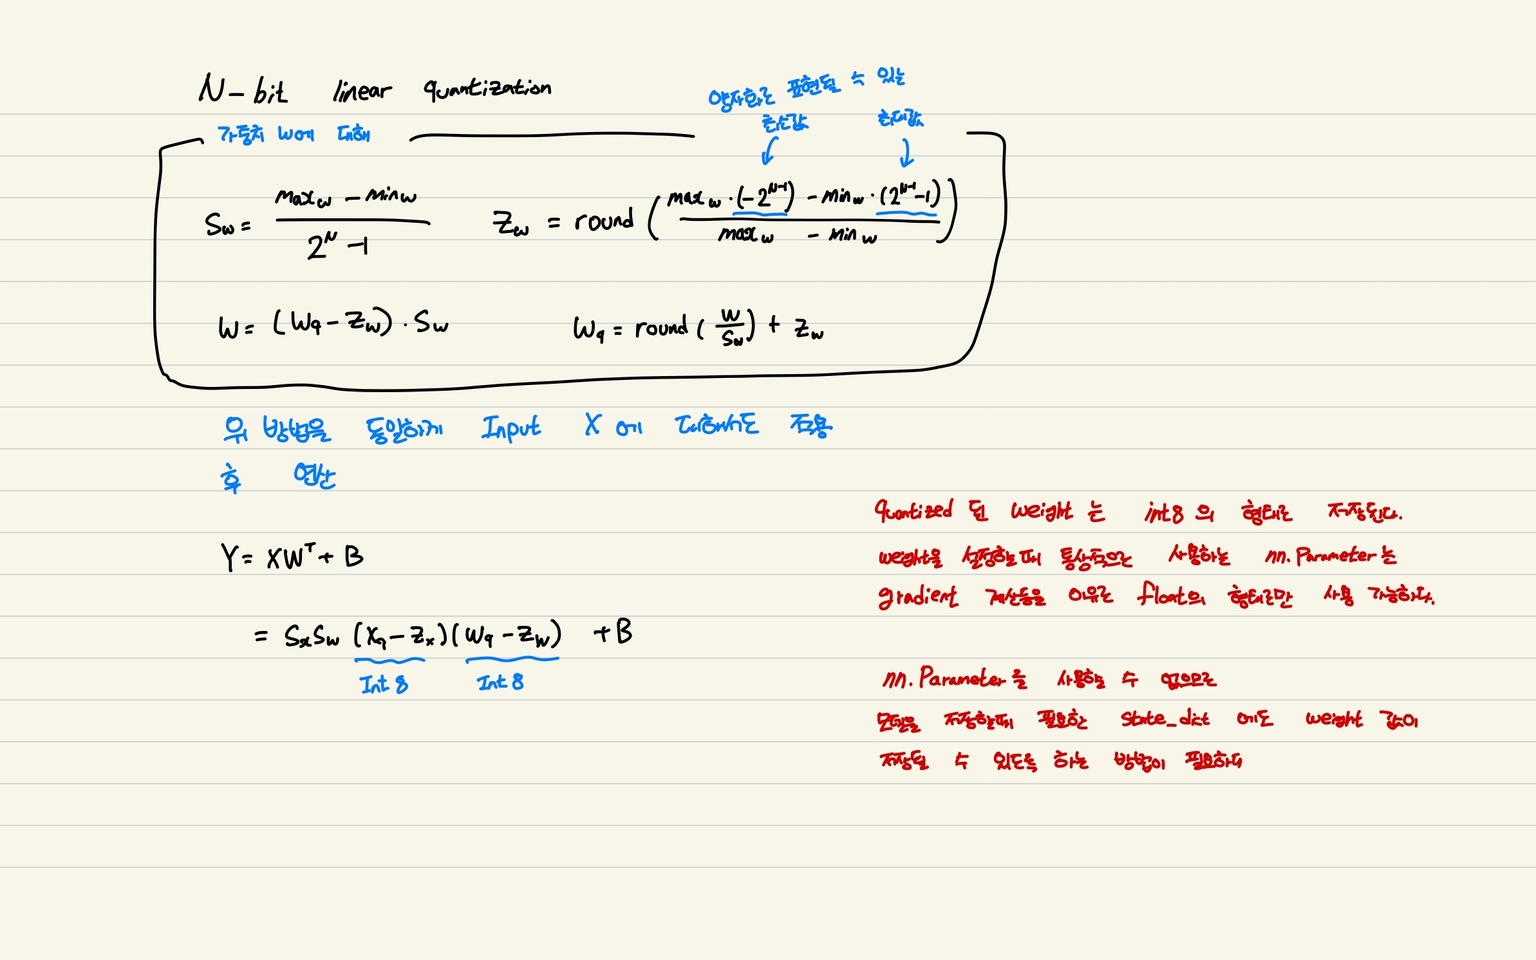 N-bit linear quantization
양자화로 표현될 수 있는
최솟값 최대값
가중치 W에 대해
S_w = (max_w - min_w) / (2^N - 1)    Z_w = round( (max_w · (-2^{N-1}) - min_w · (2^{N-1} - 1)) / (max_w - min_w) )
W = (W_q - Z_w) · S_w    W_q = round( W / S_w ) + Z_w
위 방법을 동일하게 Input X 에 대해서도 적용
후 연산
Y = XW^T + B
= S_x S_w (X_q - Z_x)(W_q - Z_w) + B
Int 8 Int 8
quantized 된 weight 는 int8 의 형태로 저장된다.
weight을 설정할때 통상적으로 사용하는 nn.Parameter는
gradient 계산등을 이유로 float의 형태로만 사용 가능하다.
nn.Parameter를 사용할 수 없으므로
모델을 저장할때 필요한 state_dict 에도 weight 값이
저장될 수 있도록 하는 방법이 필요하다